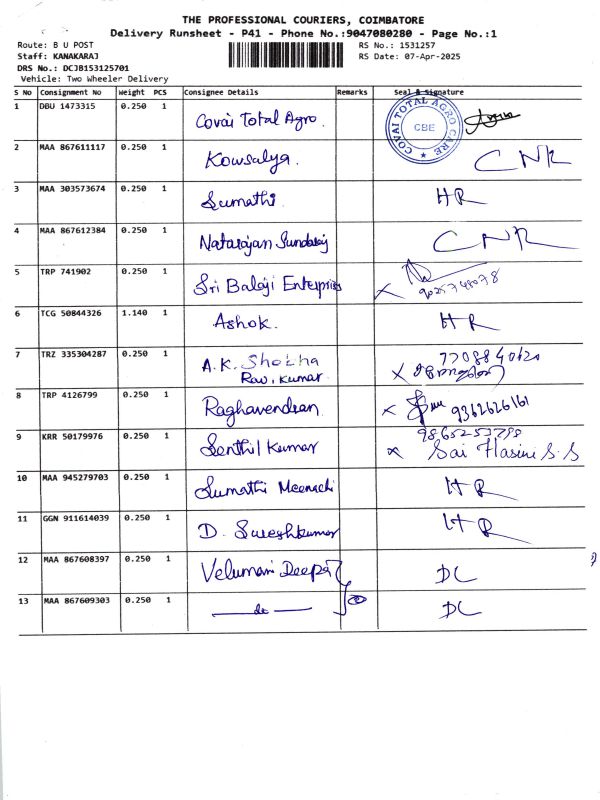 THE PROFESSIONAL COURIERS, COIMBATORE
Delivery Runsheet - P41 - Phone No.:9047080280 - Page No.:1
Route: B U POST RS No.: 1531257
Staff: KANAKARAJ RS Date: 07-Apr-2025
DRS No.: DCJB153125701
Vehicle: Two Wheeler Delivery
S No Consignment No Weight PCS Consignee Details Remarks Seal & Signature
1 DBU 1473315 0.250 1 Covai Total Agro. COVAI TOTAL AGRO CARE CBE
2 MAA 867611117 0.250 1 Kowsalya. CNR
3 MAA 303573674 0.250 1 Sumathi. HR
4 MAA 867612384 0.250 1 Natarajan Sundaraj CNR
5 TRP 741902 0.250 1 Sri Balaji Enterprises X
6 TCG 50844326 1.140 1 Ashok. HR
7 TRZ 335304287 0.250 1 A.K. Shobha X
Ravi. Kumar.
8 TRP 4126799 0.250 1 Raghavendran X 9362626161
9 KRR 50179976 0.250 1 Senthil Kumar X Sai Hasini S.S
10 MAA 945279703 0.250 1 Sumathi Meenachi HR
11 GGN 911614039 0.250 1 D. Sureshkumar HR
12 MAA 867608397 0.250 1 Velumani Deepa DL
13 MAA 867609303 0.250 1 — do — DL